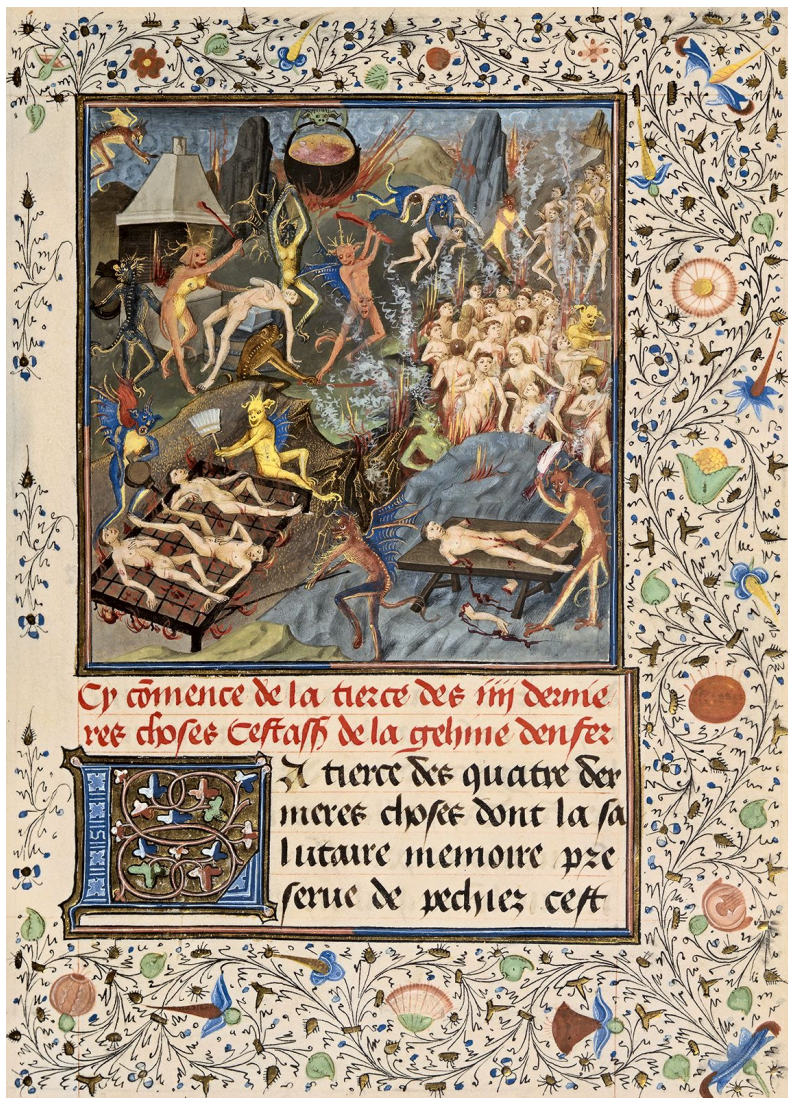 Cy cōmence de la tierce des iiij dernie
res choses Cestass de la gehine denfer
La tierce des quatre der
nieres choses dont la sa
lutaire memoire pre
serue de pechier cest